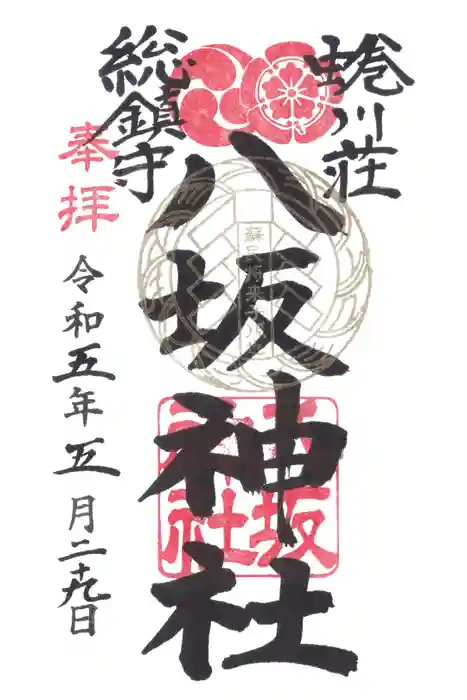 蜷川荘
総鎮守
八坂神社
奉拝
令和五年五月二十九日
八坂
神社
蘇民将来